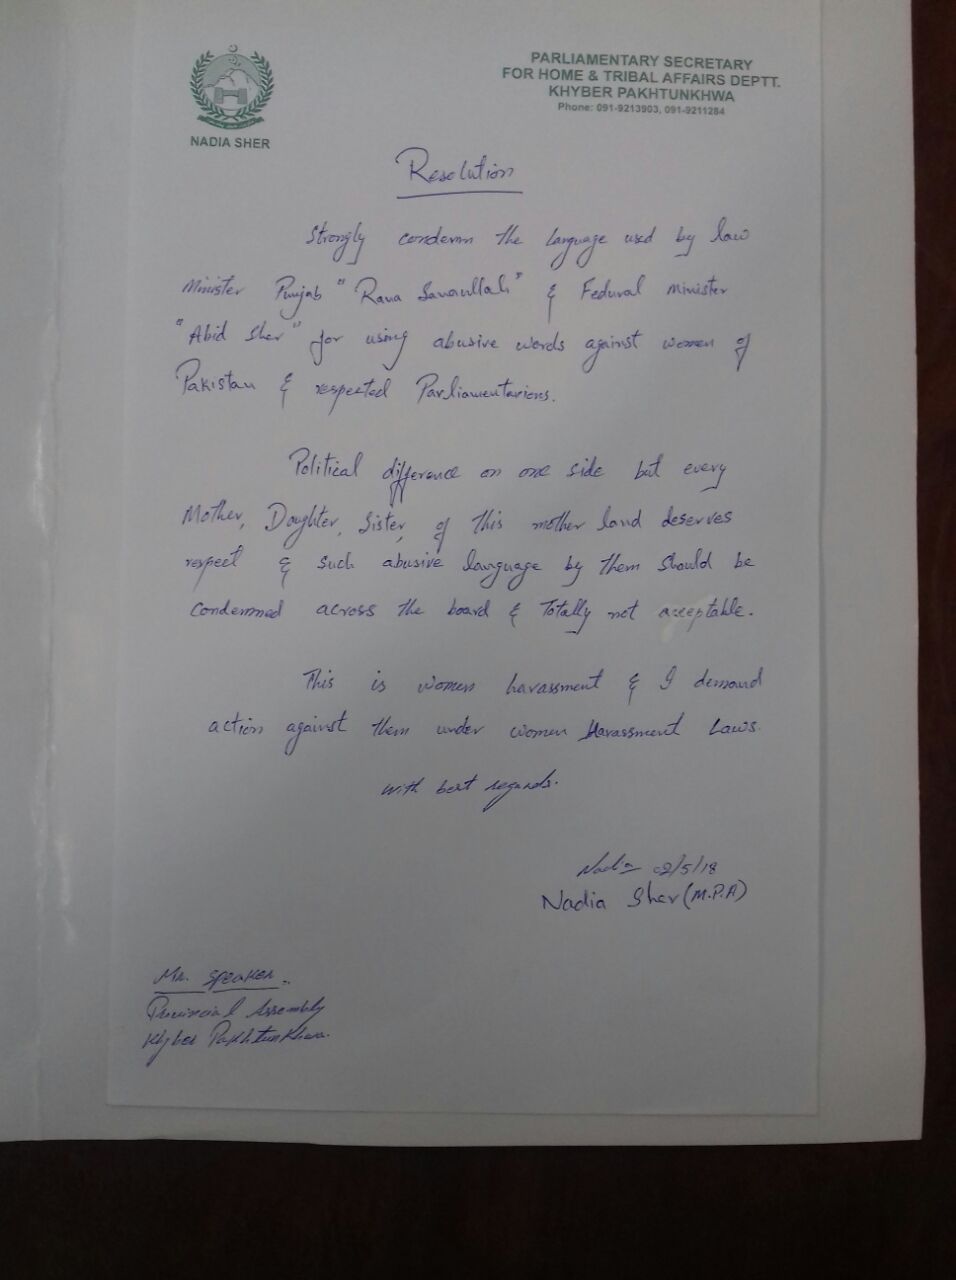 NADIA SHER
PARLIAMENTARY SECRETARY
FOR HOME & TRIBAL AFFAIRS DEPTT.
KHYBER PAKHTUNKHWA
Phone: 091-9213903, 091-9211284
Resolution
Strongly condemn the language used by law
Minister Punjab "Rana Sanaullah" & Fedural minister
"Abid Sher" for using abusive words against women of
Pakistan & respected Parliamentarions.
Political difference on one side but every
Mother, Doughter, Sister, of this mother land deserves
respect & such abusive language by them should be
condemned across the board & Totally not acceptable.
This is women harassment & I demand
action against them under women Harassment Laws.
with best regards.
Nadia 02/5/18
Nadia Sher (M.P.A)
Mr. Speaker
Provincial Assembly
Khyber Pakhtunkhwa.